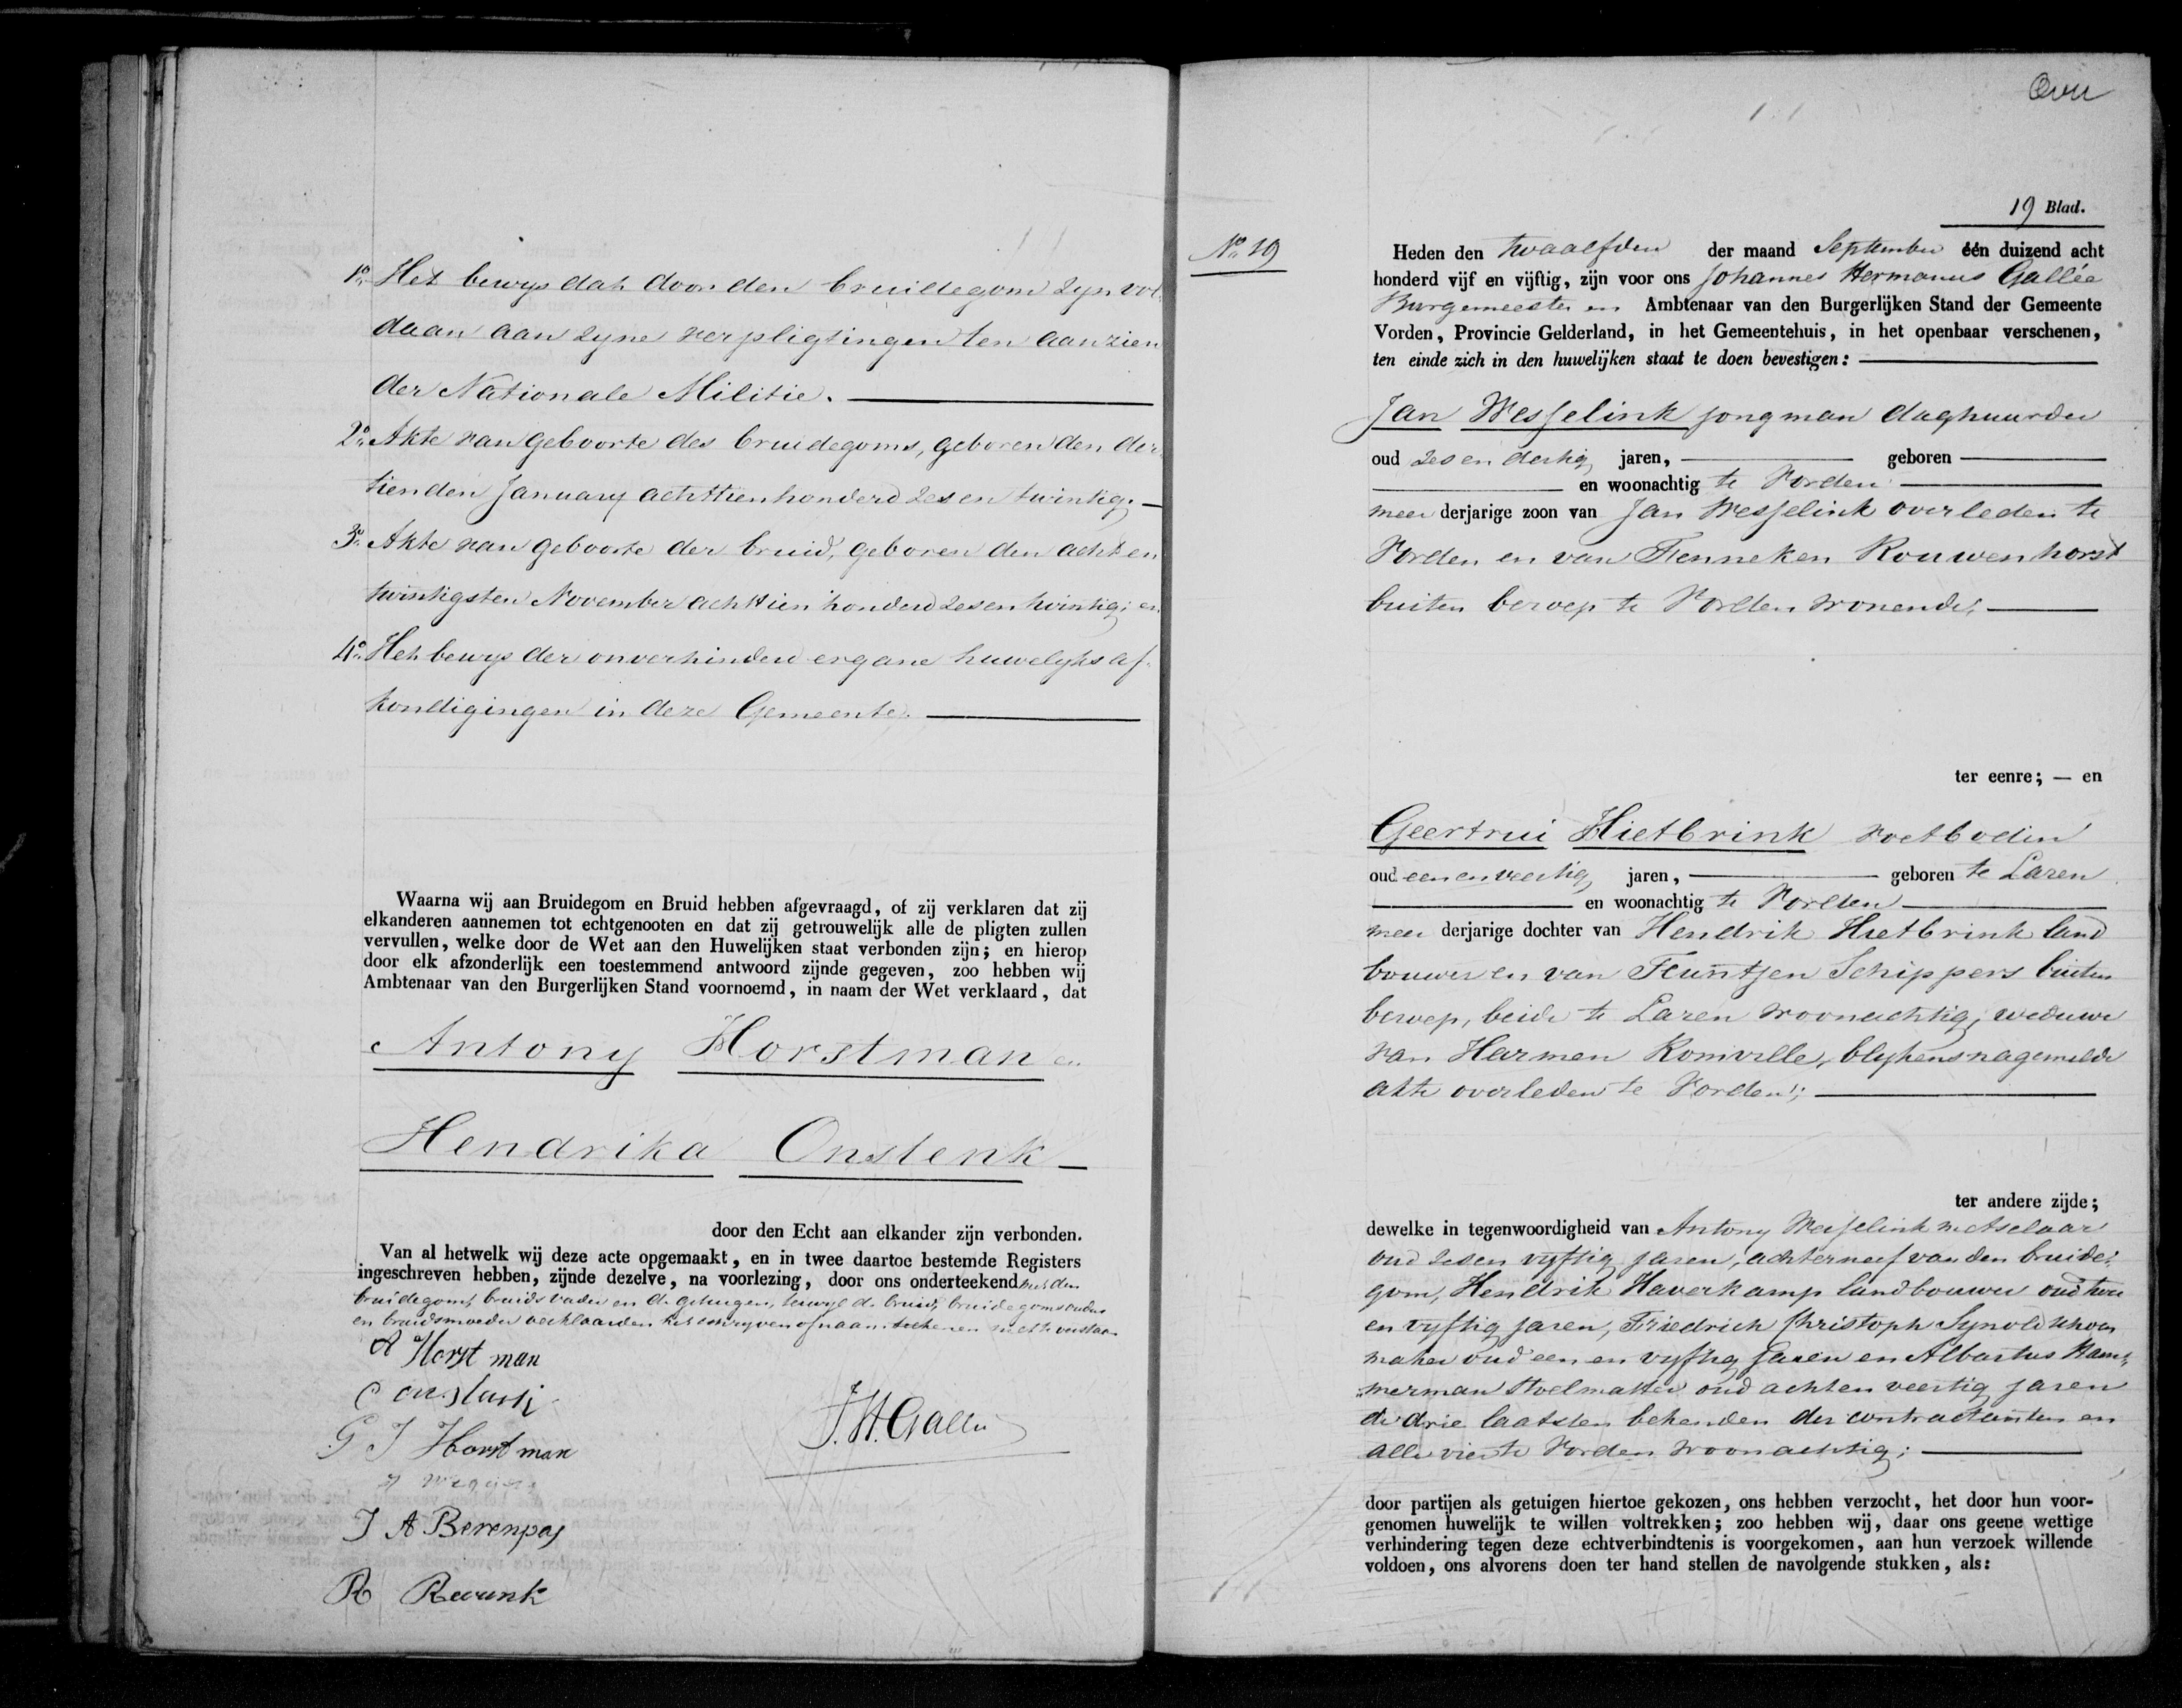 1o. Het bewys dat door den bruidegom zyn vol-
daan aan zyne verpligtingen ten aanzien
der Nationale Militie.
2o. Akte van geboorte des bruidegoms, geboren den der-
tienden January achttienhonderd zes en twintig.
3o. Akte van geboorte der bruid, geboren den acht en
twintigsten November achttien honderd zes en twintig; en
4o. Het bewys der onverhinderd ergane huwelyks af-
kondigingen in deze Gemeente.
Waarna wij aan Bruidegom en Bruid hebben afgevraagd, of zij verklaren dat zij
elkanderen aannemen tot echtgenooten en dat zij getrouwelijk alle de pligten zullen
vervullen, welke door de Wet aan den Huwelijken staat verbonden zijn; en hierop
door elk afzonderlijk een toestemmend antwoord zijnde gegeven, zoo hebben wij
Ambtenaar van den Burgerlijken Stand voornoemd, in naam der Wet verklaard, dat
Antony Horstman en
Hendrika Onstenk
door den Echt aan elkander zijn verbonden.
Van al hetwelk wij deze acte opgemaakt, en in twee daartoe bestemde Registers
ingeschreven hebben, zijnde dezelve, na voorlezing, door ons onderteekend met den
bruidegom, bruids vader en de getuigen, terwyl de bruid, bruidegoms ouders
en bruidsmoeder verklaarden het schryven of naamteekenen niet te verstaan
A Horstman
G J Horstman
J. H. Gallée
J A Berenpas
R Reurink
Over
19 Blad.
No. 19
Heden den twaalfden der maand September één duizend acht
honderd vijf en vijftig, zijn voor ons Johannes Hermanus Gallée
Burgemeester en Ambtenaar van den Burgerlijken Stand der Gemeente
Vorden, Provincie Gelderland, in het Gemeentehuis, in het openbaar verschenen,
ten einde zich in den huwelijken staat te doen bevestigen:
Jan Wesselink jongman daghuurder
oud zes en dertig jaren, geboren
en woonachtig te Vorden
meer derjarige zoon van Jan Wesselink overleden te
Vorden en van Fenneken Rouwenhorst
buiten beroep te Vorden wonende;
ter eenre; — en
Geertrui Hietbrink voetbodin
oud een en veertig jaren, geboren te Laren
en woonachtig te Vorden
meer derjarige dochter van Hendrik Hietbrink land
bouwer en van Teuntjen Schippers buiten
beroep, beide te Laren woonachtig; weduwe
van Harmen Romville, blykens nagemelde
akte overleden te Vorden;
ter andere zijde;
dewelke in tegenwoordigheid van Antony Wesselink metselaar
oud zes en vyftig jaren, achterneef van den bruide-
gom, Hendrik Haverkamp landbouwer oud twee
en vyftig jaren, Friedrich Christoph Synold schoen
maker oud een en vyftig jaren en Albartus Ham-
merman stoelmatter oud acht en veertig jaren
de drie laatsten bekenden der contractanten en
alle vier te Vorden woonachtig;
door partijen als getuigen hiertoe gekozen, ons hebben verzocht, het door hun voor-
genomen huwelijk te willen voltrekken; zoo hebben wij, daar ons geene wettige
verhindering tegen deze echtverbindtenis is voorgekomen, aan hun verzoek willende
voldoen, ons alvorens doen ter hand stellen de navolgende stukken, als: